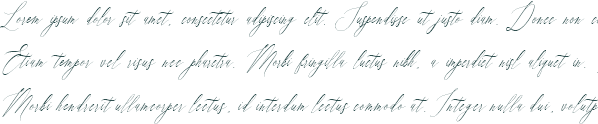 Lorem ipsum dolor sit amet, consectetur adipiscing elit. Suspendisse ut justo diam. Donec non
Etiam tempor vel risus nec pharetra. Morbi fringilla luctus nibh, a imperdiet nisl aliquet in.
Morbi hendrerit ullamcorper lectus, id interdum lectus commodo at. Integer nulla dui, volutp